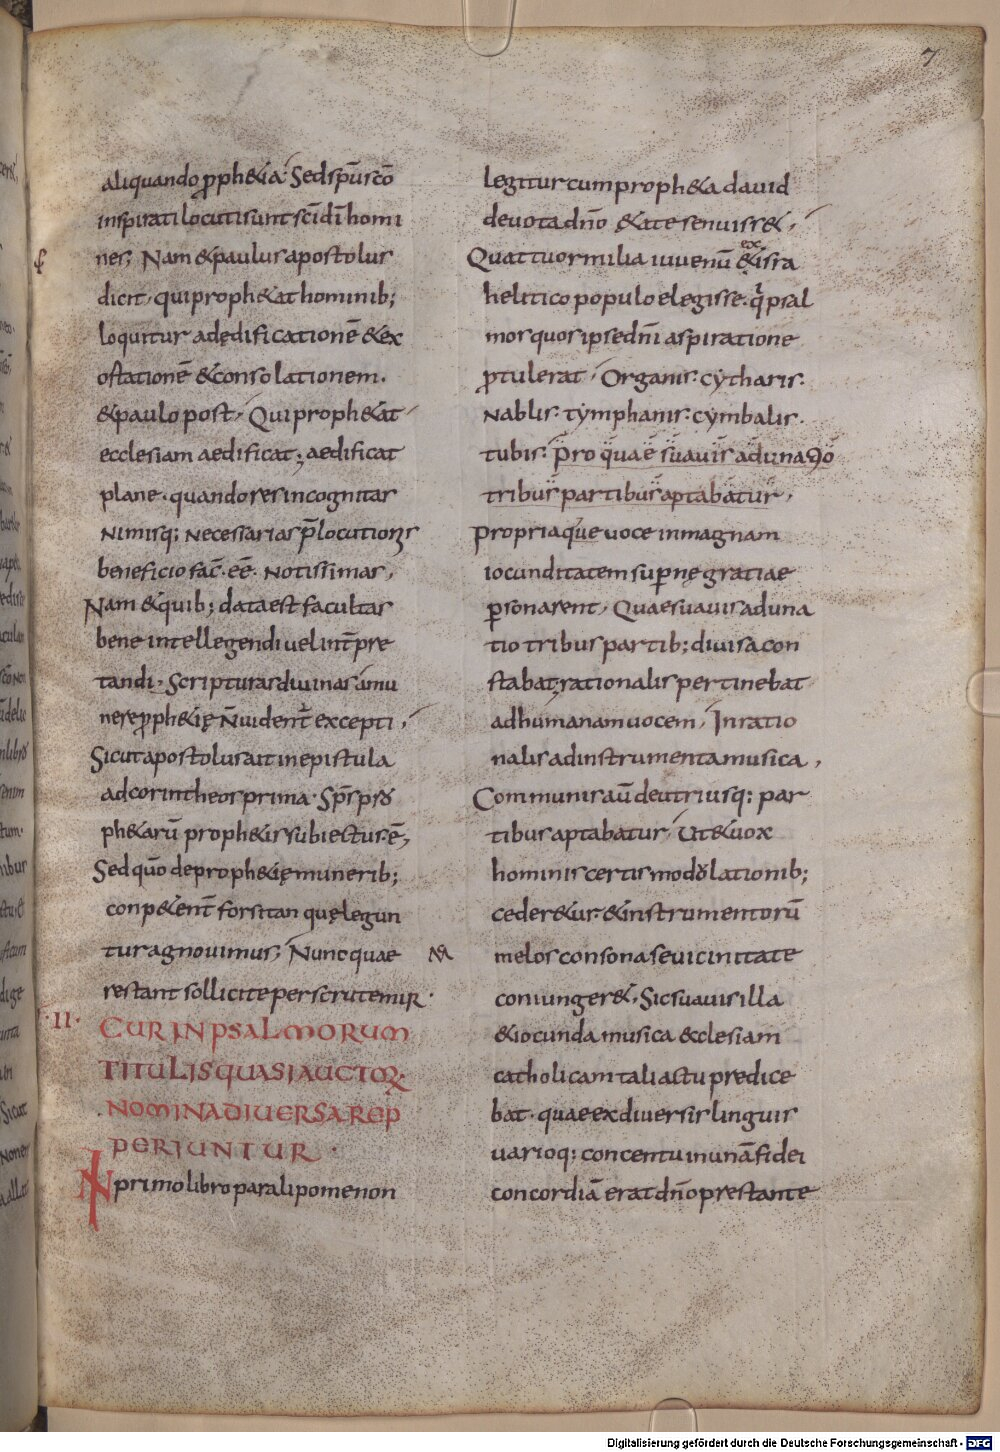 7
aliquando ꝓph&ia. Sed sp̄u scō
inspirati locuti sunt sc̄i dī homi
nes; Nam & paulus apostolus
dicit, qui proph&at hominib;
loquitur ad ędificationē & ex
ortationē & consolationem.
& paulo post, Qui proph&at
ecclesiam aedificat; aedificat
plane. quando res incognitas
Nimisq; necessarias p̄ locutionis
beneficio fac̄. eē. Notissimas,
Nam & quib; data est facultas
bene intellegendi uel int̄pre
tandi. Scripturas diuinas á mu
nere ꝓph&ię N̄ uident̄ excepti,
Sicut apostolus ait in epistula
ad corintheos prima. Sp̄s pro
ph&arū proph&is subiectus ē,
Sed quō de proph&ię munerib;
conp&ent̄ forsitan quę legun
tur agnovimus, Nunc quae
restant sollicite perscrutemur.
II. CUR IN PSALMORUM
TITULIS QUASI AUCTOR
NOMINA DIUERSA REP
PERIUNTUR.
IN primo libro paralipomenon
legitur cum proph&a dauid
deuota dn̄o &ate senuiss&,
Quattuor milia iuuenū ex & isra
helitico populo elegisse. q̄ psal
mos quos ipse dn̄i aspiratione
ꝓtulerat, Organis. cytharis.
Nablis. tymphanis. cymbalis.
tubis. Pro quae suauis adunatio
tribus partibus aptabatur,
Propriaque uoce in magnam
iocunditatem sup̄nę gratiae
ꝑsonarent, Quae suauis aduna
tio tribus partib; diuisa con
stabat; rationalis pertinebat
ad humanam uocem, Inratio
nalis ad instrumenta musica,
Communis aū de utriusq; par
tibus aptabatur, Ut & uox
hominis certis modulationib;
ceder&ur. & instrumentorū
melos consona se uicinitate
coniunger&, Sic suauis illa
& iocunda musica ecclesiam
catholicam tali actu predice
bat. quae ex diuersis linguis
uarioq; concentu in unā fidei
concordiā erat dn̄o prestante
Digitalisierung gefördert durch die Deutsche Forschungsgemeinschaft - DFG